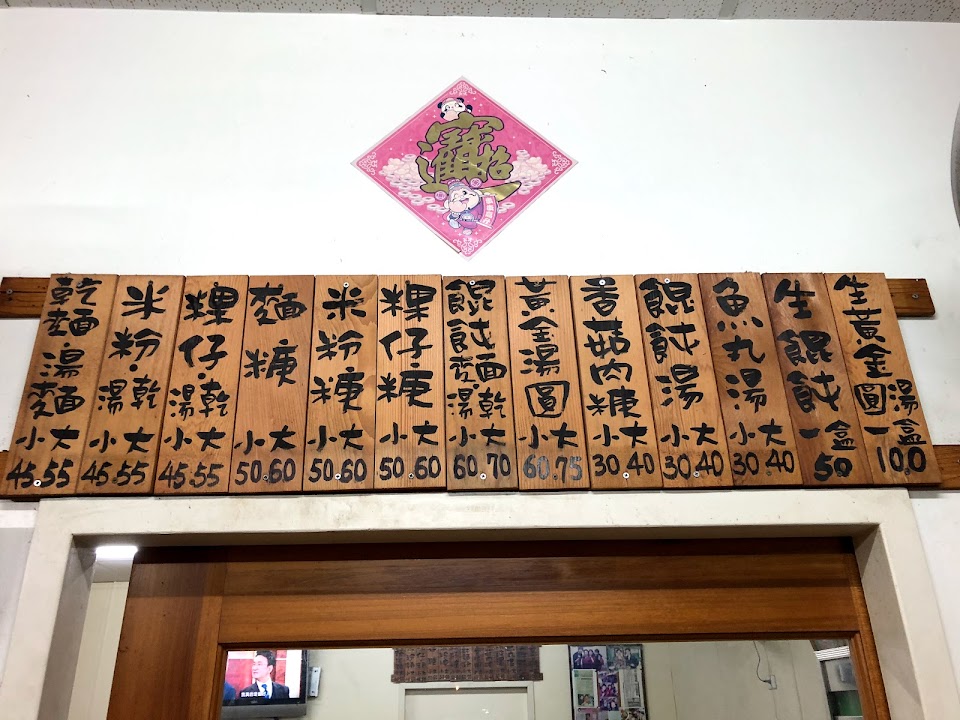 招財進寶
乾麵湯麵 小大 45.55
米粉·湯乾 小大 45.55
粿仔·湯乾 小大 45.55
麵焿 小大 50.60
米粉焿 小大 50.60
粿仔·焿 小大 50.60
餛飩麵湯乾 小大 60.70
黃金湯圓 小大 60.75
香菇肉焿 小大 30.40
餛飩湯 小大 30.40
魚丸湯 小大 30.40
生餛飩 一盒 50
生黃金湯圓 一盒 100